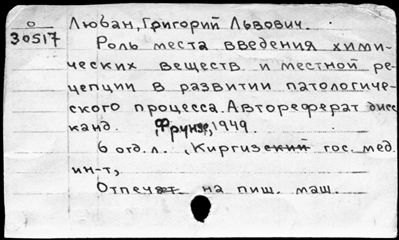 О Люван, Григорий Львович.
30517
Роль места введения хими-
ческих веществ и местной ре-
цепции в развитии патологиче-
ского процесса. Автореферат дисс
канд. Фрунзе, 1949.
6 отд. л., Киргизский гос. мед.
ин-т,
Отпечат на пиш. маш.